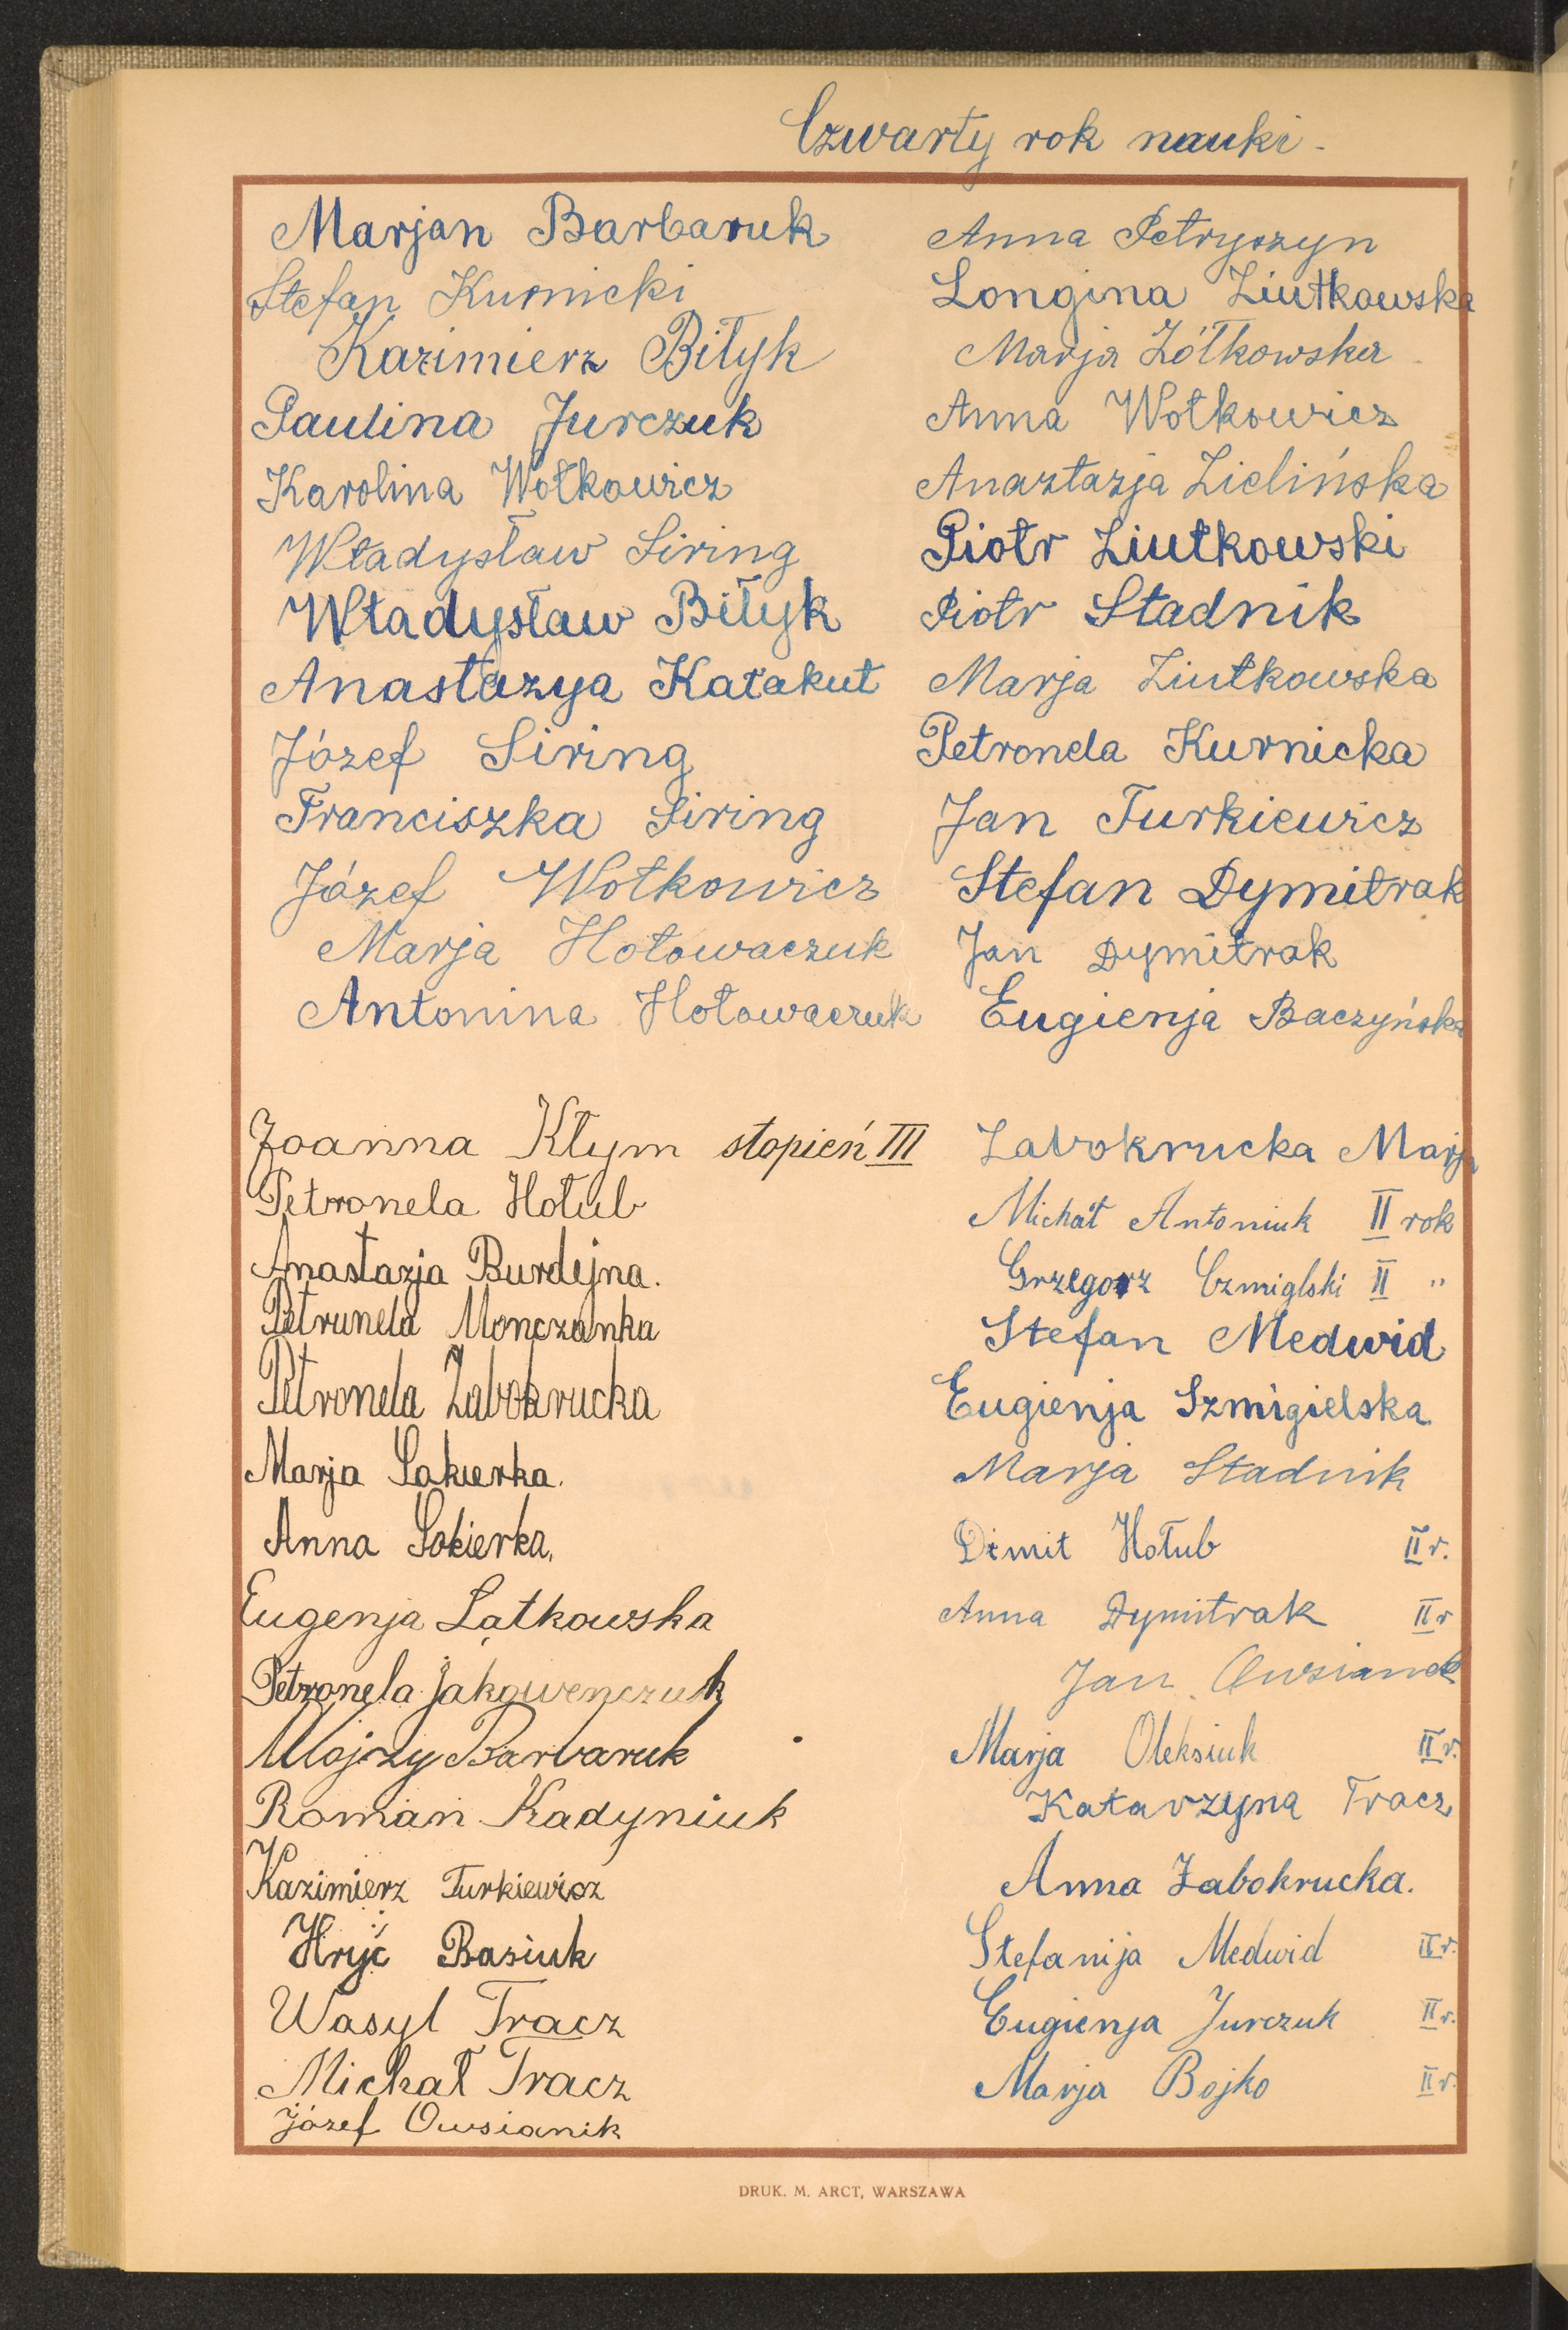 Czwarty rok nauki.
Marjan Barbaruk
Stefan Kurnicki
Kazimierz Biłyk
Paulina Jurczuk
Karolina Wołkowicz
Władysław Siring
Władysław Biłyk
Anastazya Kałakut
Józef Siring
Franciszka Siring
Józef Wołkowicz
Marja Hołowaczuk
Antonina Hołowaczuk
Anna Petryszyn
Longina Ziutkowska
Marja Żółkowska
Anna Wołkowicz
Anaztazja Zielińska
Piotr Ziutkowski
Piotr Stadnik
Marja Ziutkowska
Petronela Kurnicka
Jan Turkiewicz
Stefan Dymitrak
Jan Dymitrak
Eugienja Baczyńska
Joanna Kłym stopień III
Petronela Hołub
Anastazja Burdejna.
Petrunela Monczanka
Petronela Zabokrucka
Marja Sakierka.
Anna Sokierka.
Eugenja Latkowska
Petronela Jakowenczuk
Mojrzy Barbaruk
Roman Kadyniuk
Kazimierz Turkiewicz
Hryć Basiuk
Wasyl Tracz
Michał Tracz
Józef Owsianik
Zabokrucka Marja
Michał Antoniuk II rok
Grzegorz Czmiglski II "
Stefan Medwid
Eugienja Szmigielska
Marja Stadnik
Dimit Hołub II r.
Anna Dymitrak II r
Jan Owsianek
Marja Oleksiuk II r.
Katarzyna Tracz
Anna Zabokrucka.
Stefanija Medwid II r.
Eugienja Jurczuk II r.
Marja Bojko II r.
DRUK. M. ARCT, WARSZAWA